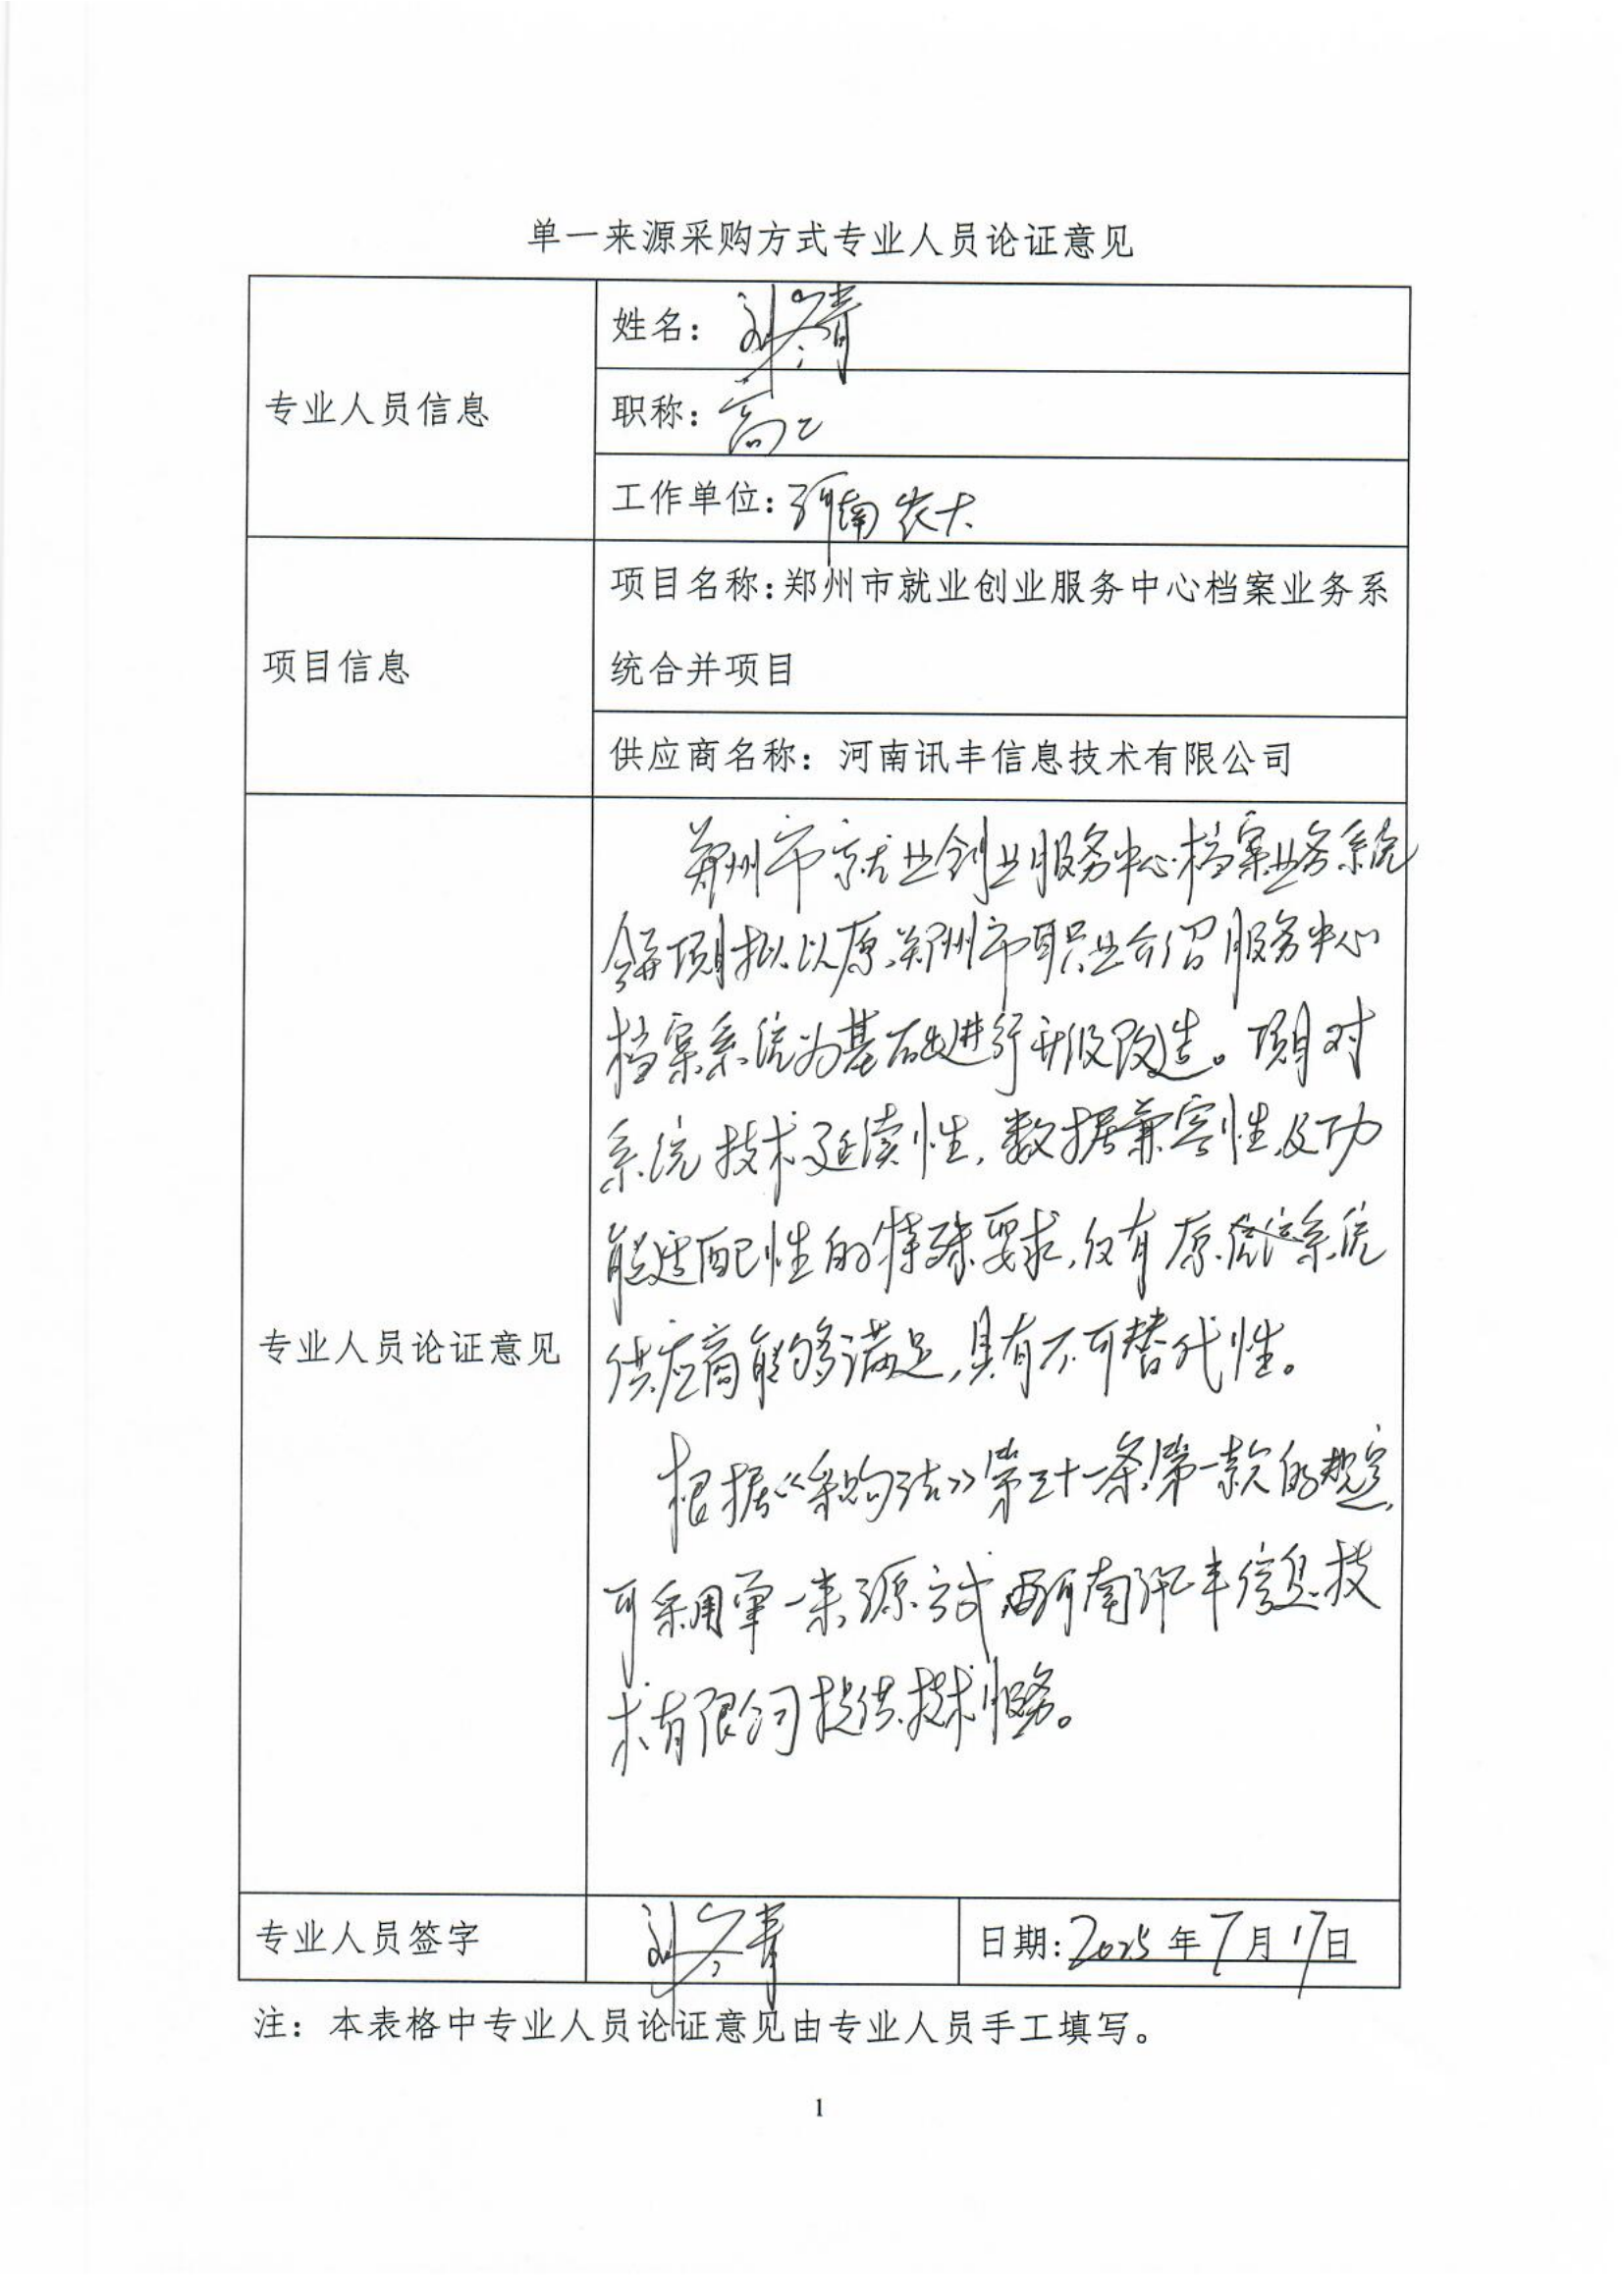 单一来源采购方式专业人员论证意见
专业人员信息
姓名：刘
职称：高工
工作单位：河南农大
项目信息
项目名称：郑州市就业创业服务中心档案业务系
统合并项目
供应商名称：河南讯丰信息技术有限公司
专业人员论证意见
郑州市就业创业服务中心档案业务系统
合并项目拟以原郑州市职业介绍服务中心
档案系统为基础进行升级改造。项目对
系统技术延续性，数据兼容性及功
能适配性的特殊要求，仅有原系统
供应商能够满足，具有不可替代性。
根据《采购法》第三十一条第一款的规定，
可采用单一来源方式由河南讯丰信息技
术有限公司提供技术服务。
专业人员签字
刘
日期：2025年7月17日
注：本表格中专业人员论证意见由专业人员手工填写。
1